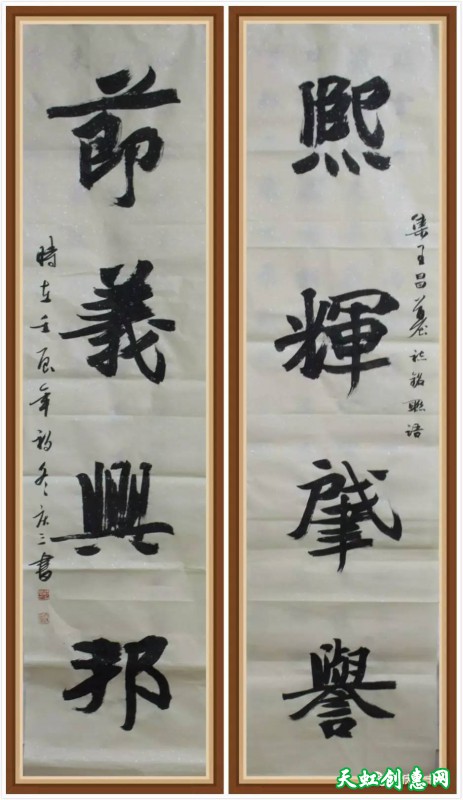 熙輝肇譽
集王昌墓誌銘聯語
節義興邦
時在壬辰年初冬庆三書
天虹创惠网